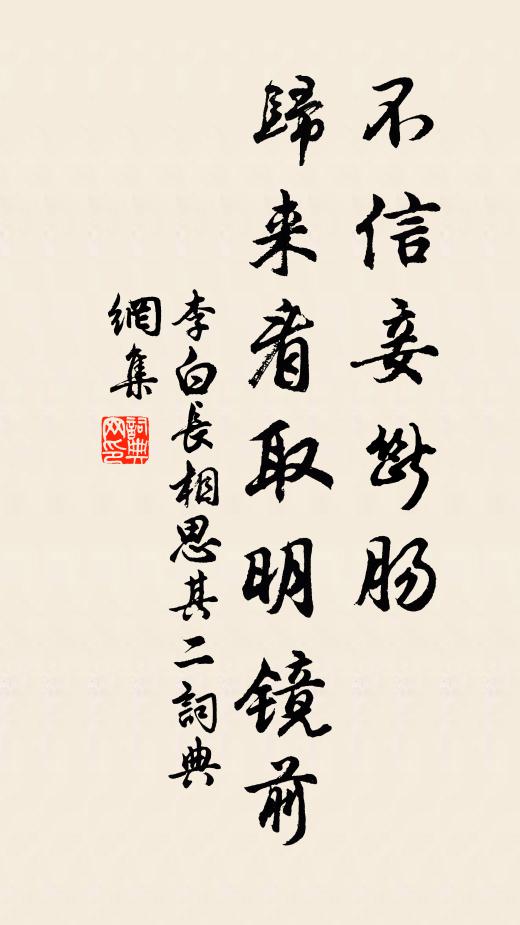 不信妾断肠
歸来看取明镜前
李白長相思其二詞典
網集
詞典
网印